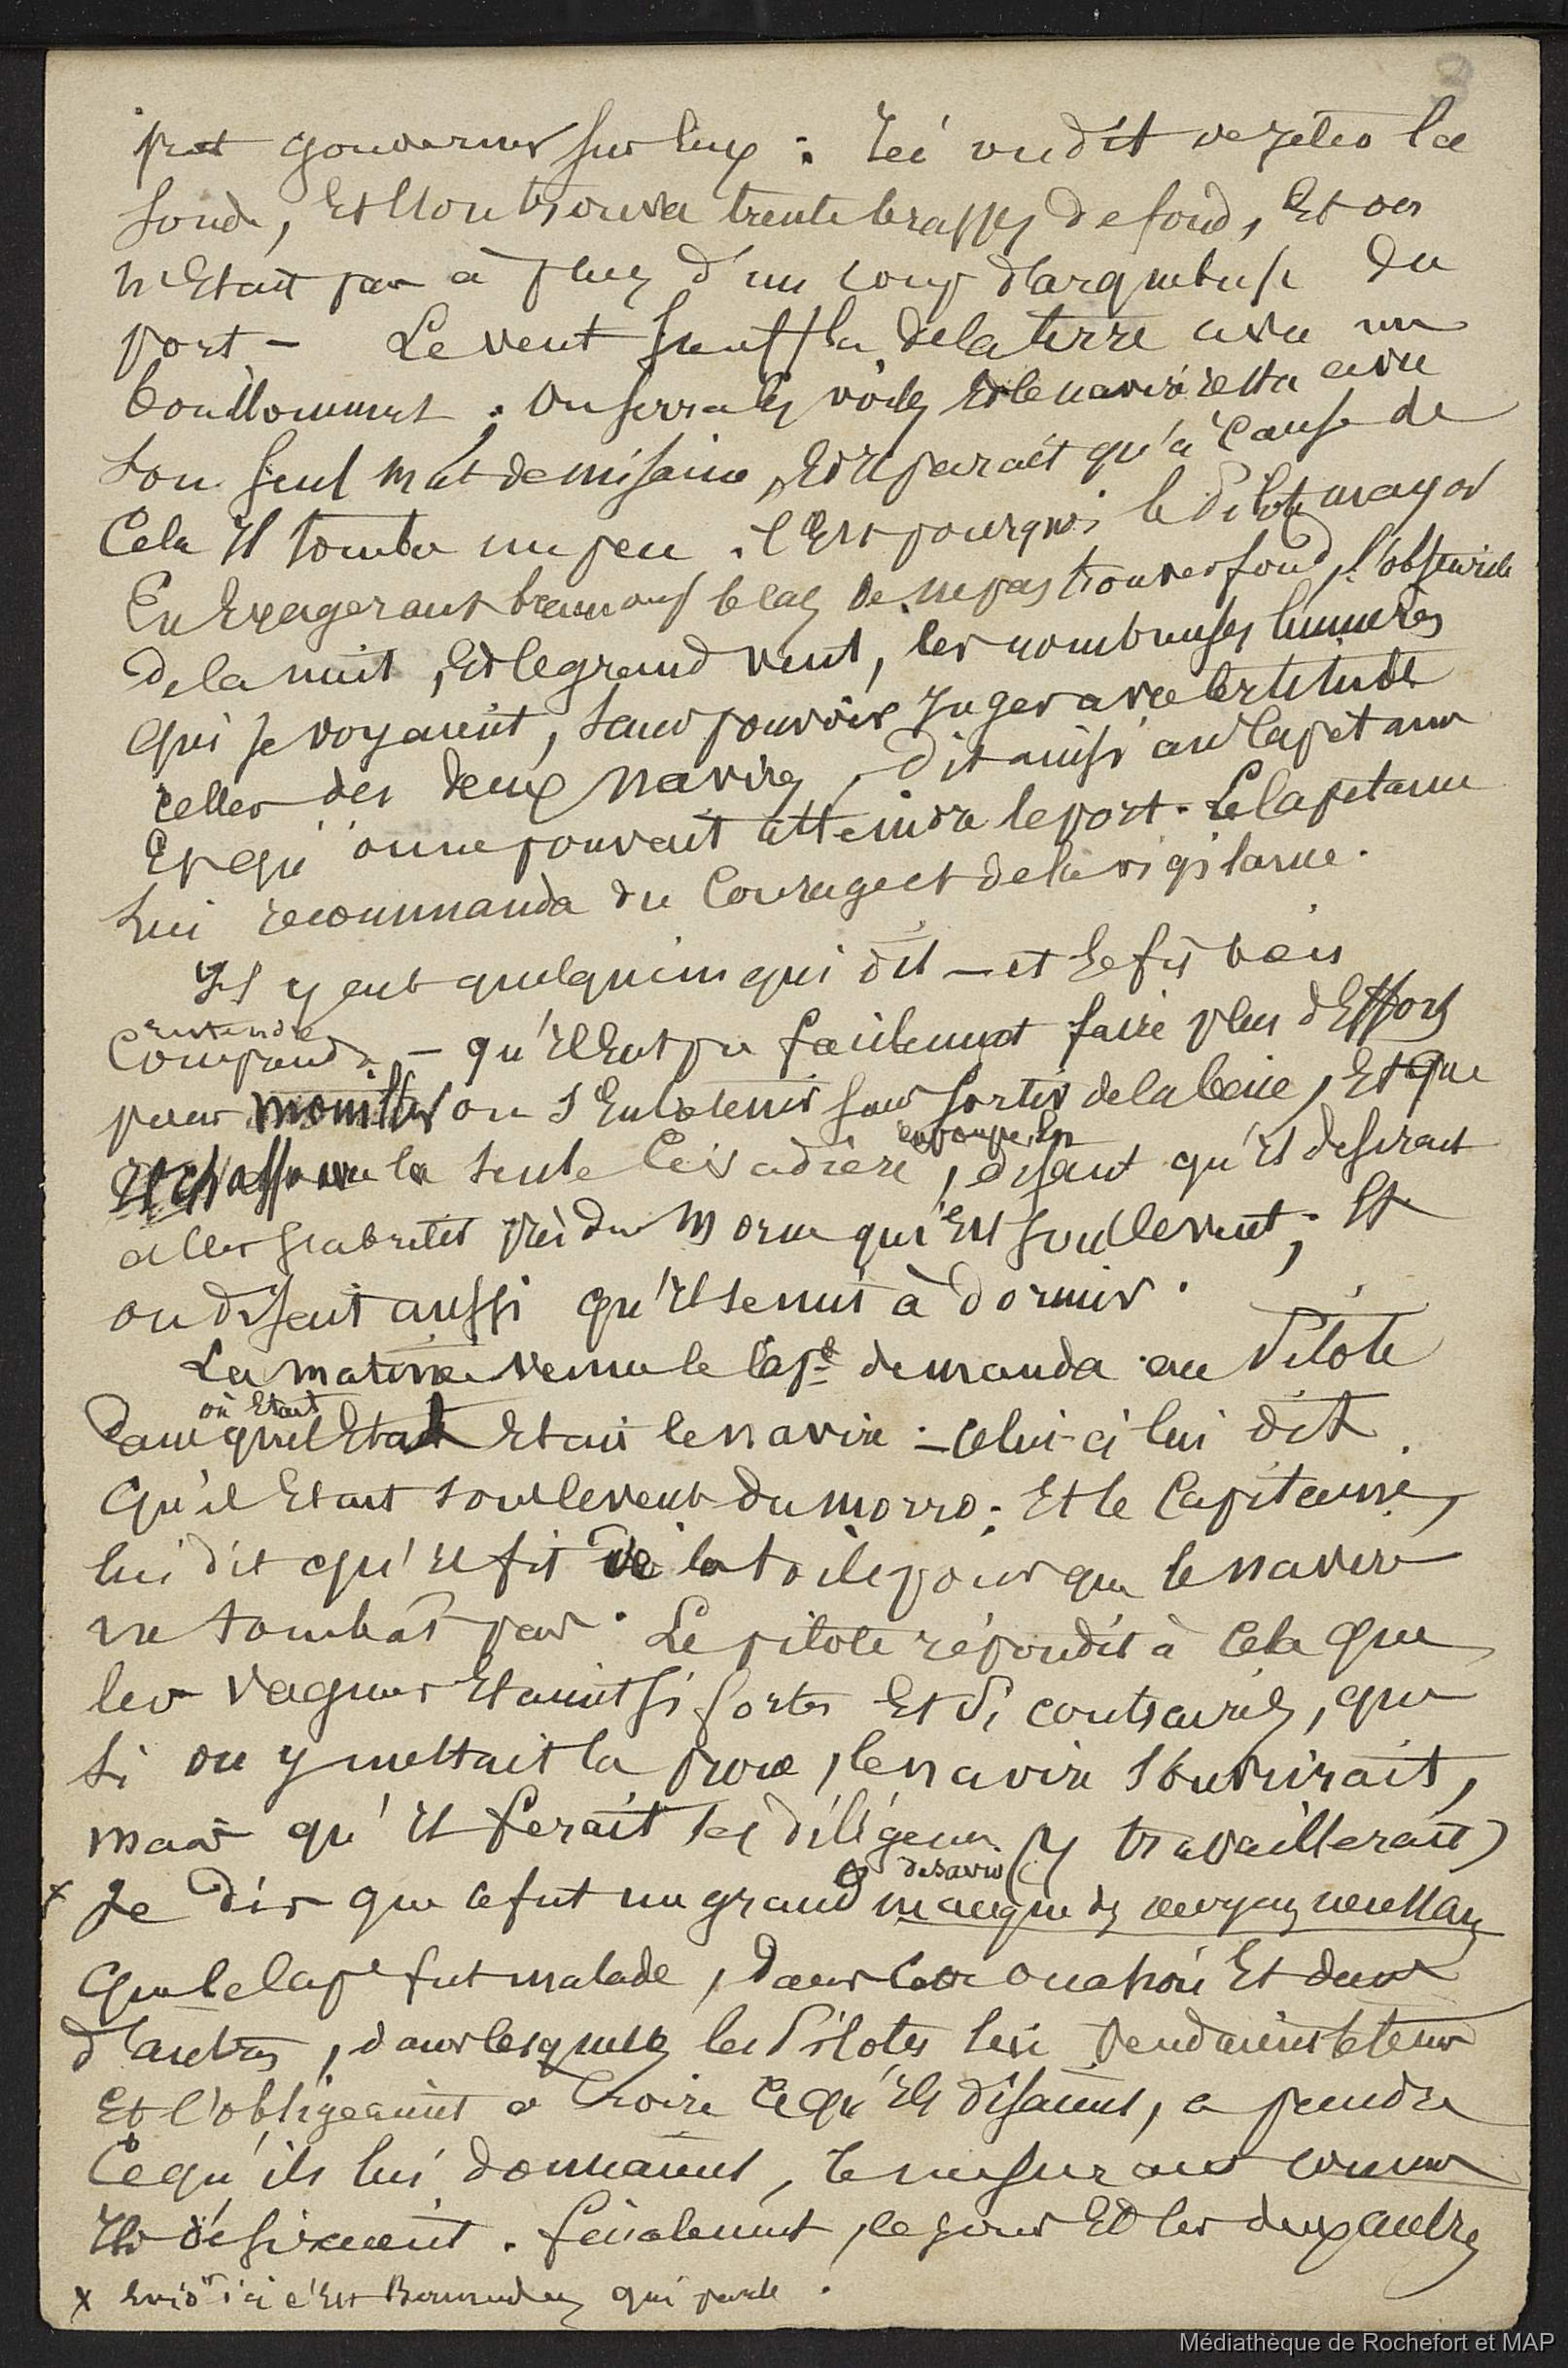 put gouverner sur eux : Ici on dit de jeter la
sonde, Et l'on trouva trente brasses de fond, Et on
n'Etait pas à plus d'un coup d'arquebuse du
port – Le vent souffla de la terre avec un
bouillonnement. On serra les voiles Et le navire resta avec
son seul mat de misaine, Et il parait qu'à cause de
Cela Il tomba un peu. C'Est pourquoi le Pilote mayor
En Exagerant beaucoup le cas de ne pas trouver fond, l'obscurité
de la nuit, Et le grand vent, les nombreuses lumières
qui se voyaient, sans pouvoir juger avec certitude
celles des deux navires, dit ainsi au Capitaine
Et qu'on ne pouvait atteindre le port. Le Capitaine
lui recommanda du Courage et de la vigilance.
Il y eut quelqu'un qui dit – et le fit bien
entendre
Comprendre – qu'il Eut pu facilement faire plus d'Efforts
pour mouiller ou s'Entretenir sans sortir de la baie, Et que
la seule Civadière en poupe, disant qu'il desirait
aller s'abriter près du Morne qui Est sous le vent; Et
on disait aussi qu'Il se mit à dormir.
La matinée venue le Cap.e demanda au Pilote
où Etait
Dans quel Etat Etait le navire – celui-ci lui dit
Qu'il Etait sous le vent du morro; Et le Capitaine,
lui dit qu'il fit de la toile pour que le navire
ne tombât pas. Le pilote répondit à Cela que
les vagues Etaient si fortes Et si contraires, que
si on y mettait la proue, le navire s'ouvrirait,
mais qu'Il ferait ses diligences (y travaillerait)
x Je dis que ce fut un grand
que le Cap.e fut malade, dans Cette occasion Et dans
d'autres, dans lesquelles les Pilotes lui vendaient le tems
Et l'obligeaient a Croire Ce qu'Ils disaient, a prendre
Ce qu'ils lui donnaient, le mesurant comme
Ils désiraient. finalement, ce jour Et les deux autres
x ici c'Est Bermudez qui parle.
Médiathèque de Rochefort et MAP